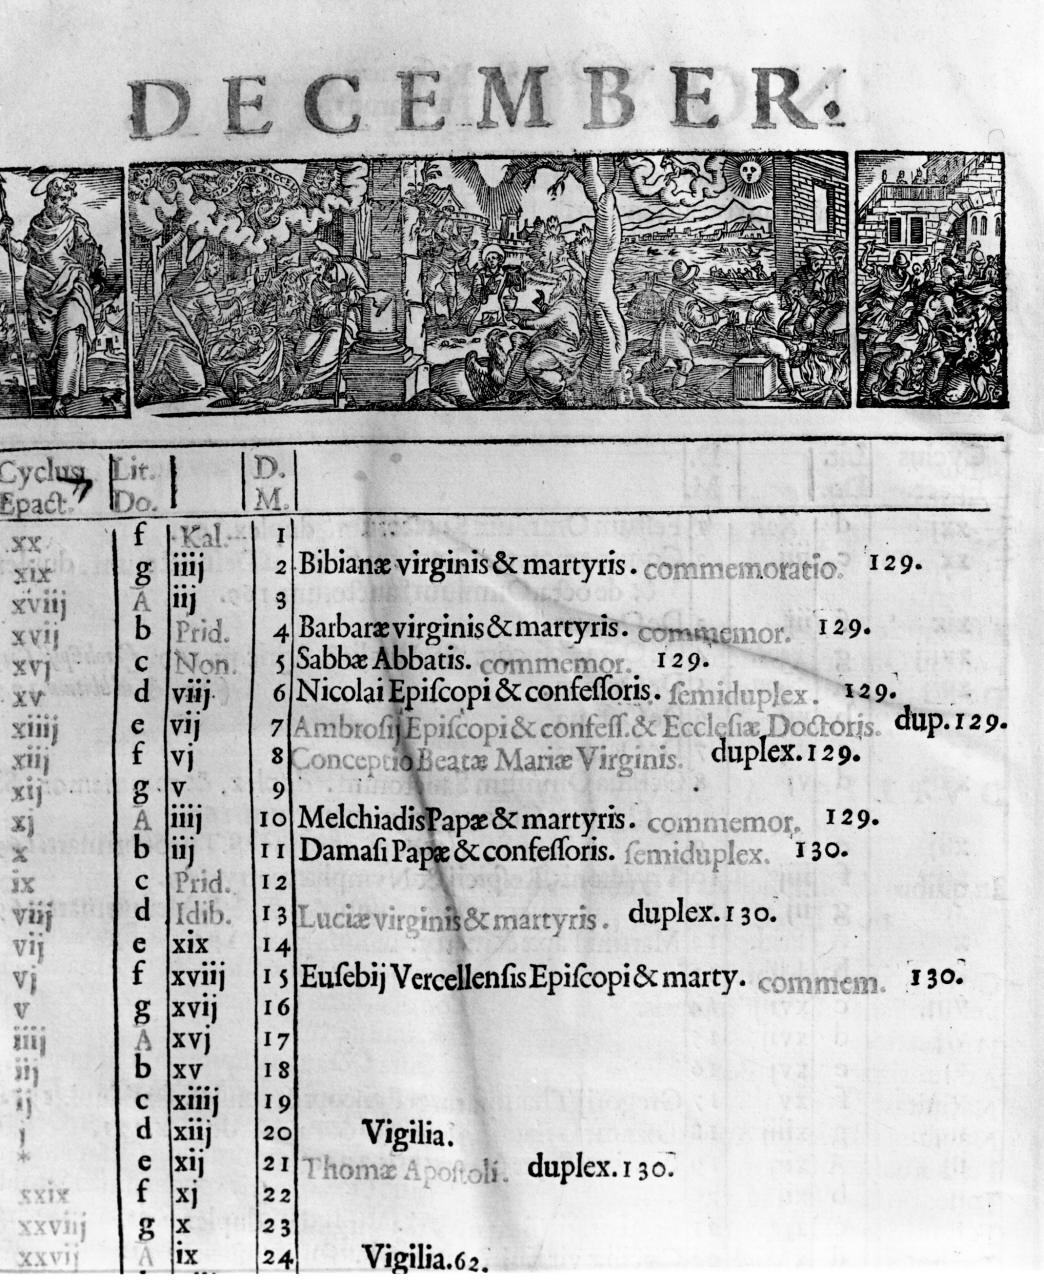 DECEMBER.
Cyclus Lit. D.
Epact. Do. M.
xx f Kal. 1
xix g iiij 2 Bibianæ virginis & martyris. commemoratio. 129.
xviij A iij 3
xvij b Prid. 4 Barbaræ virginis & martyris. commemor. 129.
xvj c Non. 5 Sabbæ Abbatis. commemor. 129.
xv d viij 6 Nicolai Epiſcopi & confeſſoris. ſemiduplex. 129.
xiiij e vij 7 Ambroſij Epiſcopi & confeſſ. & Eccleſiæ Doctoris. dup. 129.
xiij f vj 8 Conceptio Beatæ Mariæ Virginis. duplex. 129.
xij g v 9
xj A iiij 10 Melchiadis Papæ & martyris. commemor. 129.
x b iij 11 Damaſi Papæ & confeſſoris. ſemiduplex. 130.
ix c Prid. 12
viij d Idib. 13 Luciæ virginis & martyris. duplex. 130.
vij e xix 14
vj f xviij 15 Euſebij Vercellenſis Epiſcopi & marty. commem. 130.
v g xvij 16
iiij A xvj 17
iij b xv 18
ij c xiiij 19
j d xiij 20 Vigilia.
* e xij 21 Thomæ Apoſtoli. duplex. 130.
xxix f xj 22
xxviij g x 23
xxvij A ix 24 Vigilia. 62.